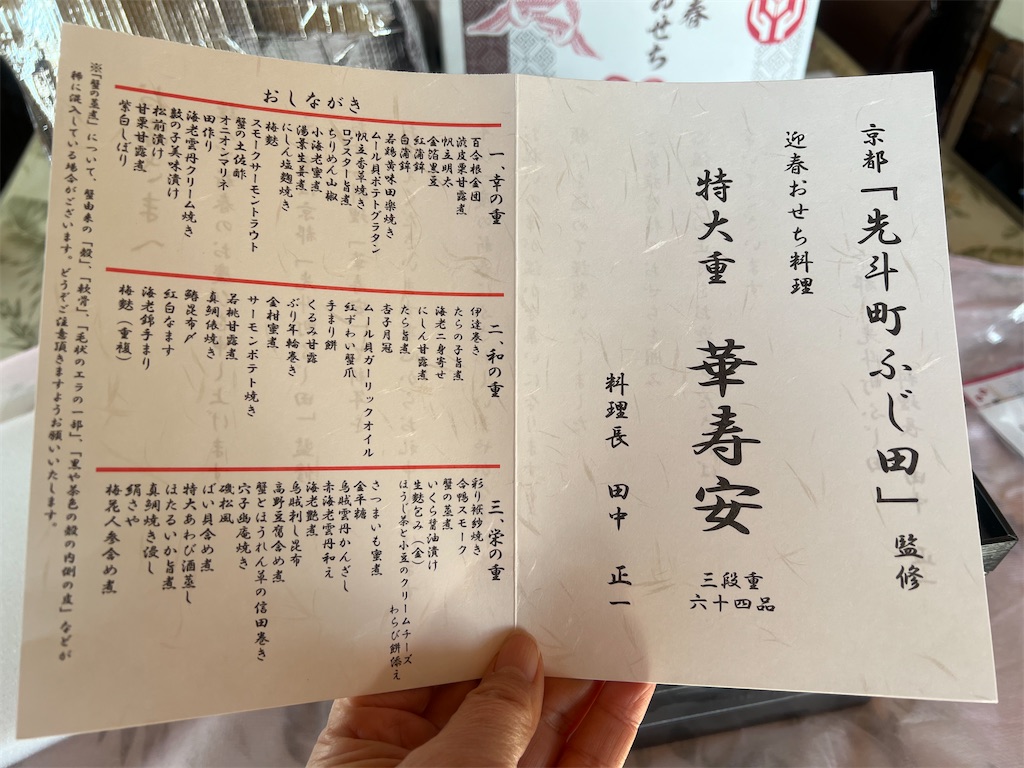 春
おせち
京都「先斗町ふじ田」監修
迎春おせち料理
特大重 華寿安
三段重
六十四品
料理長 田中 正一
おしながき
一、幸の重
百合根金団
渋皮栗甘露煮
帆立明太
金箔黒豆
紅蒲鉾
白蒲鉾
若鶏黄味田楽焼き
ムール貝ポテトグラタン
帆立香草焼き
ロブスター旨煮
ちりめん山椒
小海老蜜煮
湯葉生姜煮
にしん塩麹焼き
梅麩
スモークサーモントラウト
蟹の土佐酢
オニオンマリネ
田作り
海老雲丹クリーム焼き
数の子美味漬け
松前漬け
甘栗甘露煮
紫白しぼり
二、和の重
伊達巻き
たらの子旨煮
海老二身寄せ
にしん甘露煮
たら旨煮
杏子月冠
ムール貝ガーリックオイル
紅ずわい蟹爪
手まり餅
くるみ甘露
ぶり年輪巻き
金柑蜜煮
サーモンポテト焼き
若桃甘露煮
真鯛俵焼き
鰆昆布〆
紅白なます
海老錦手まり
梅麩(重複)
三、栄の重
彩り袱紗焼き
合鴨スモーク
蟹の蒸煮
いくら醤油漬け
生麩包み(金)
ほうじ茶と小豆のクリームチーズ
わらび餅添え
さつまいも蜜煮
金平糖
烏賊雲丹かんざし
赤海老雲丹和え
海老艶煮
烏賊刺し昆布
高野豆腐含め煮
蟹とほうれん草の信田巻き
穴子幽庵焼き
磯松風
ばい貝含め煮
特大あわび酒蒸し
ほたるいか旨煮
真鯛焼き浸し
絹さや
梅花人参含め煮
※「蟹の蒸煮」について、蟹由来の「殻」、「軟骨」、「毛状のエラの一部」、「黒や茶色の殻の内側の皮」などが
稀に混入している場合がございます。どうぞご注意頂きますようお願いいたします。